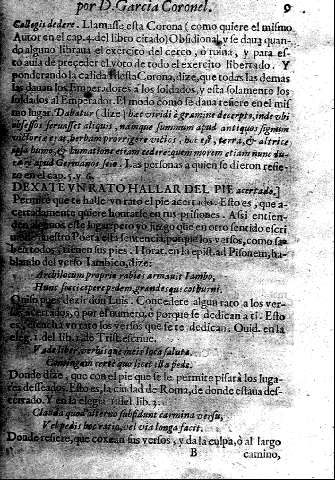 por D. Garcia Coronel. 9
Collegis dedere. Llamasse esta Corona (como quiere el mismo
Autor en el cap. 4. del libro citado) Obsidional, y se daua quan-
do alguno libraua el exercito del cerco, ò ruina, y para es-
to auia de preceder el voto de todo el exercito libertado. Y
ponderando la calidad desta Corona, dize, que todas las demas
las dauan los Emperadores a los soldados, y esta solamento los
soldados al Emperador. El modo como se daua refiere en el mis
mo lugar. Dabatur (dize) hæc viridi è gramine decerpto, inde vbi
obsessos seruasset aliquis, namque summum apud antiquos signum
victoriæ erat, herbam prorrigere victos, hoc est, terra, & altrice
ipsa humo, & humatione etiam cedere, quem morem etiam nunc du-
rare apud Germanos scio. Las personas a quien se dieron refie-
re en el cap. 5. y 6.
DEXATE VN RATO HALLAR DEL PIE acertado.]
Permite que te halle vn rato el pie acertado. Esto es, que a-
certadamente quiere honrarse en tus prisiones. Assi entien-
den algunos este lugar, pero yo juzgo que en otro sentido escri
uio nuestro Poeta esta sentencia, porque los versos, como sa-
beis todos, tienen sus pies. Horat. en la epist. ad Pisonem, ha-
blando del verso Iambico, dize:
Archilocum proprio rabies armauit Iambo,
Hunc socci cepere pedem, grandesque cothurni.
Quiso pues dezir don Luis. Concedete algun rato a los ver-
sos acertados, ò por el numero, ò porque se dedican a ti. Esto
es, escucha vn rato los versos que te dedicais. Ouid. en la
eleg. 1. del lib. 1. de Trist. escriue.
Vade liber, verbisque meis loca saluta.
Contingam certè quo licet illa pede.
Donde dize, que con el pie que se le permite pisarà los luga-
res desseados. Esto es, la ciudad de Roma, de donde estaua des-
terrado. Y en la elegia 1. del lib. 3.
Clauda quod alterno subsidunt carmina versu,
Vel pedis hoc ratio, vel via longa facit.
Donde refiere, que coxean sus versos, y da la culpa, ò al largo
B camino,